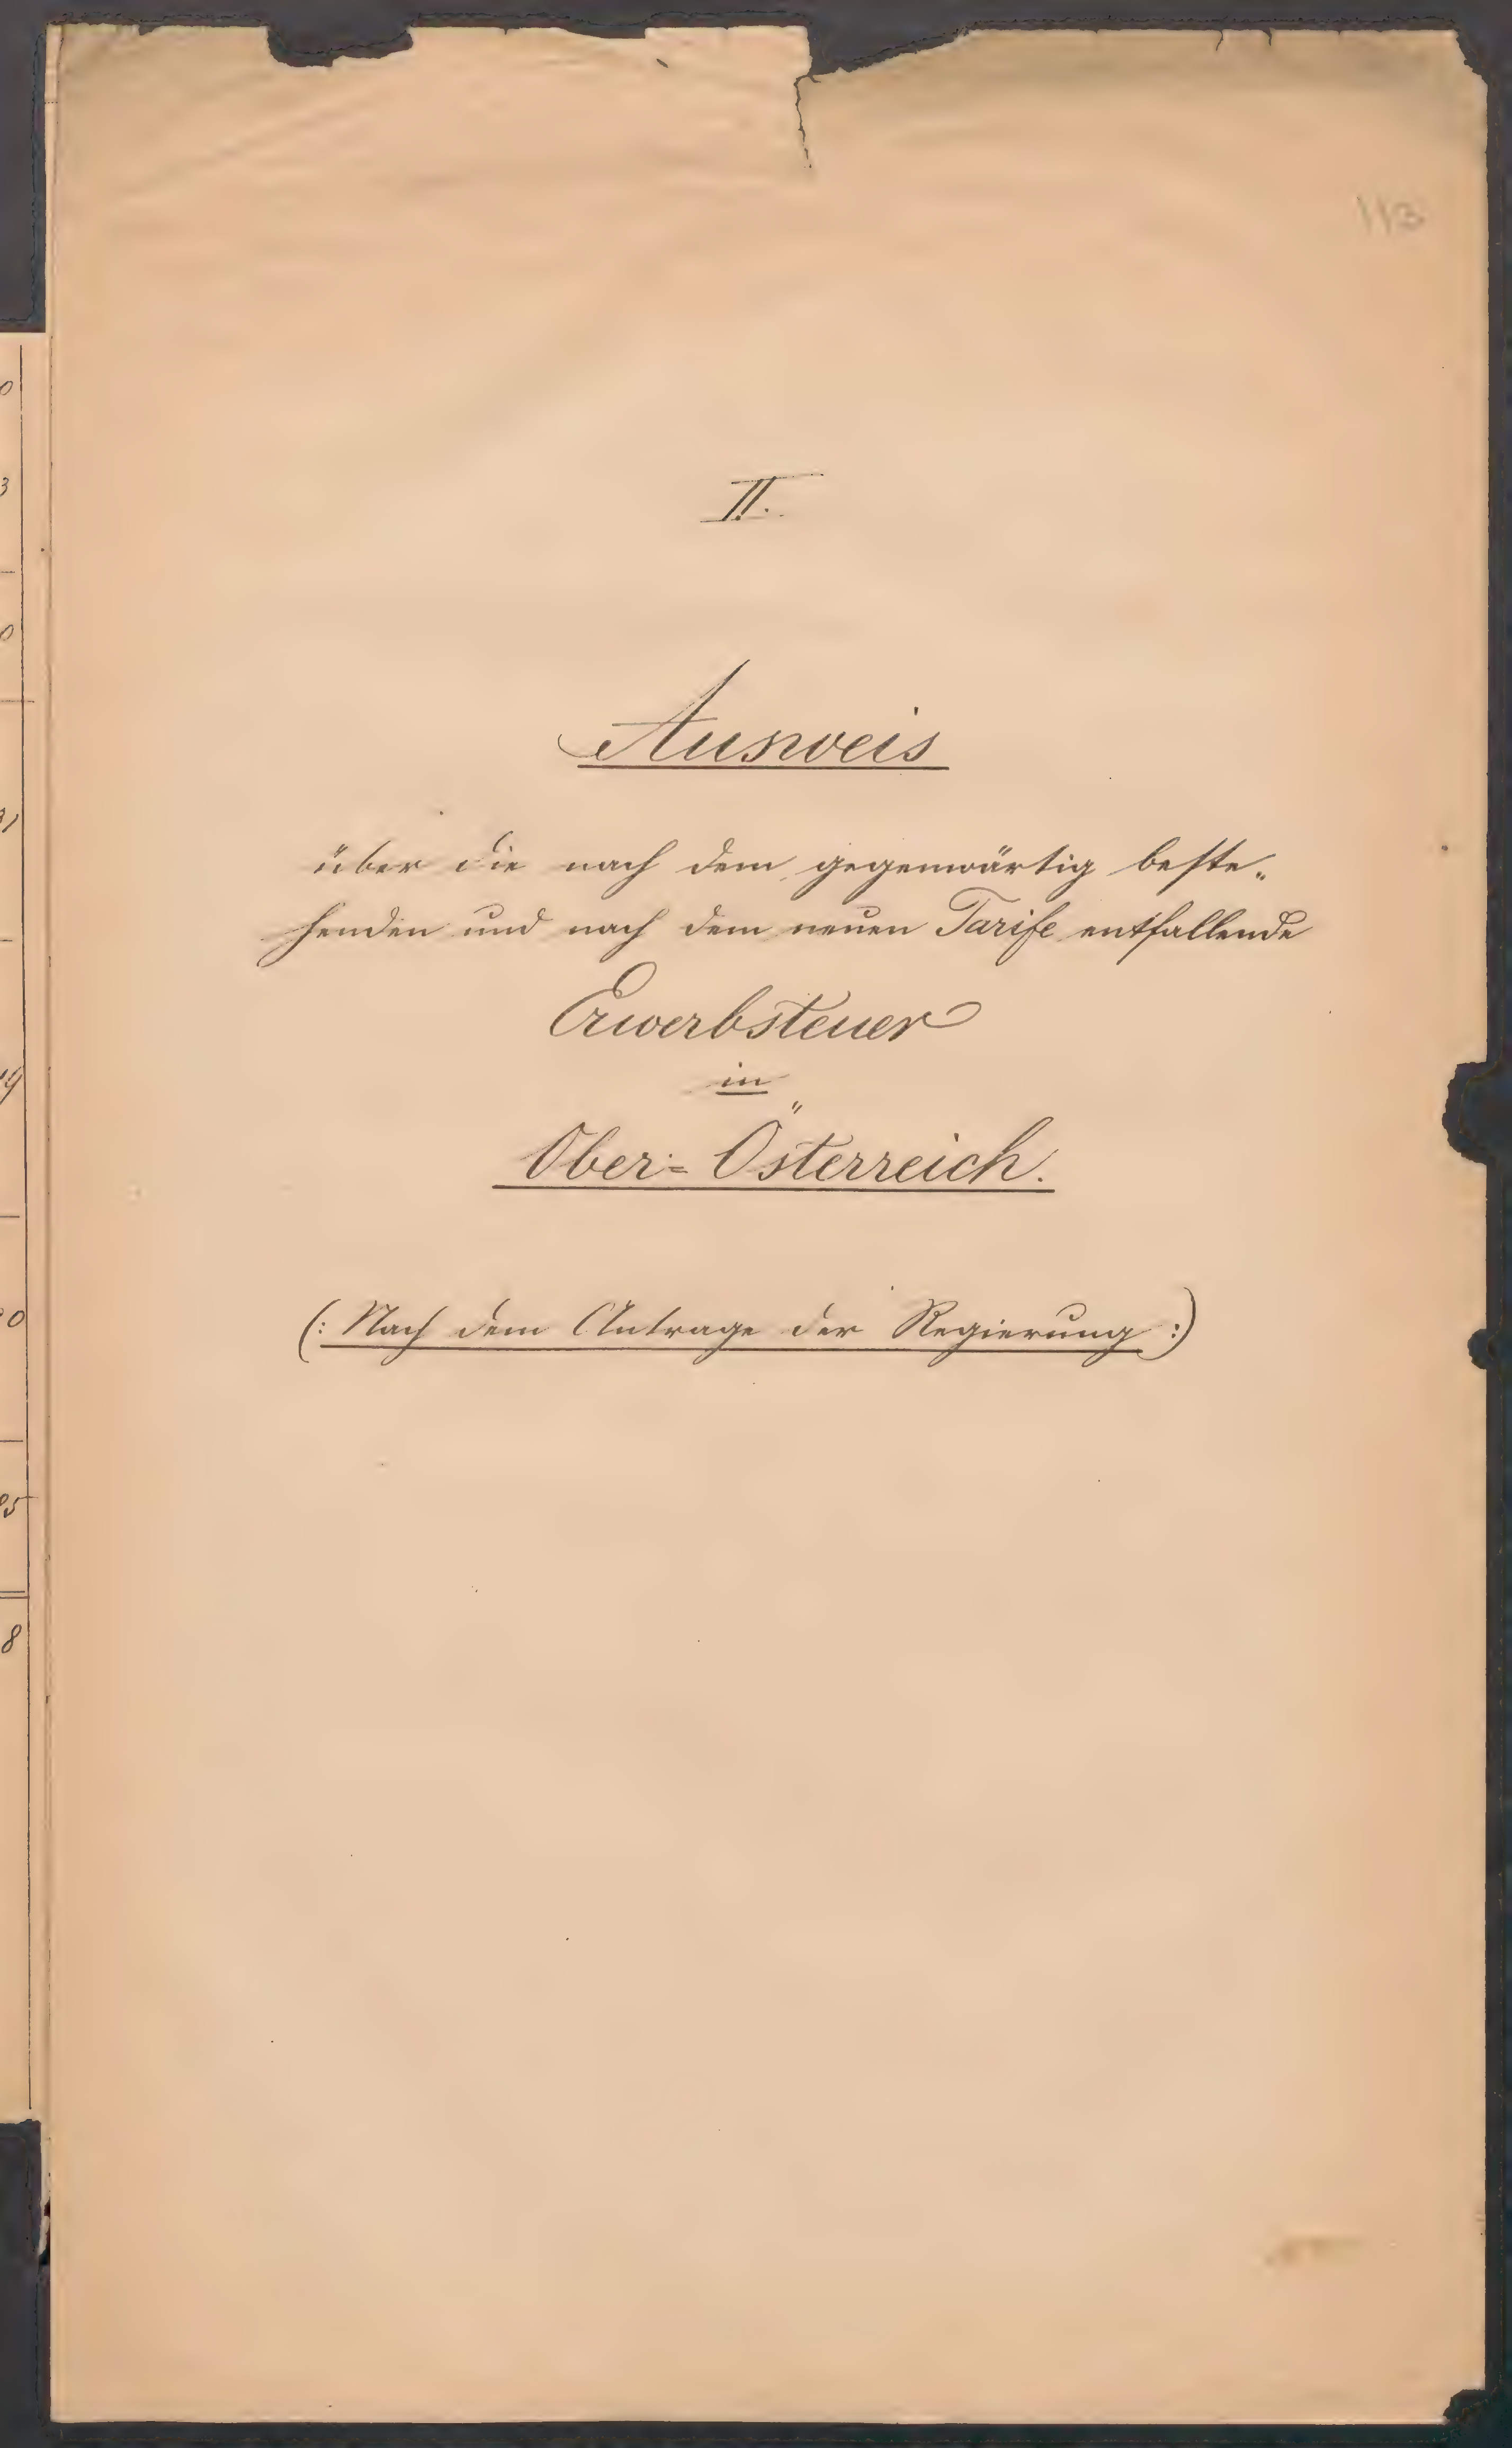 113
II.
Ausweis
über die nach dem gegenwärtig beste„
henden und nach dem neuen Tarife entfallende
Erwerbsteuer
in
Ober=Österreich.
(: Nach dem Antrage der Regierung :)